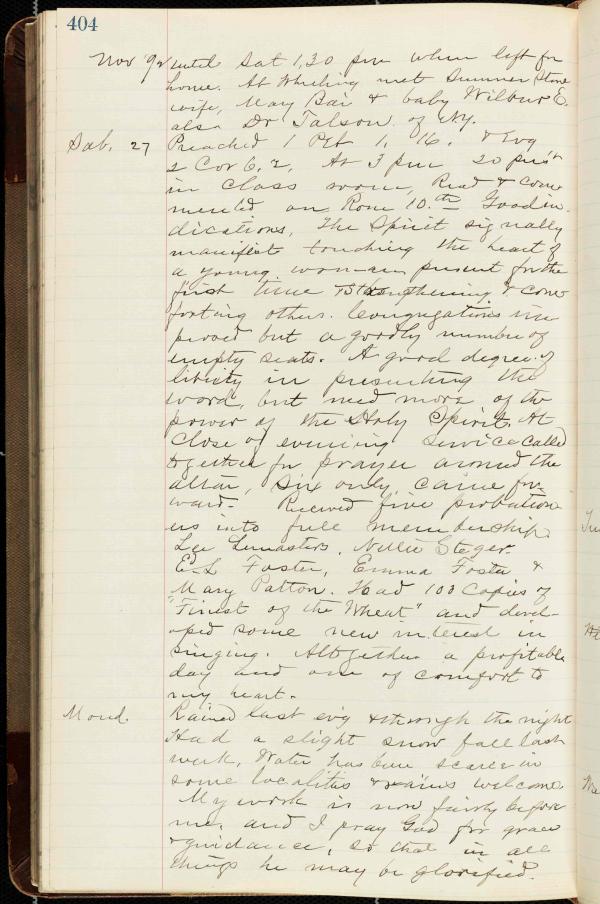 404
Nov '92 until Sat 1,30 pm when left for
home. At Wheeling met Sumner Stone
wife, Mary Bai & baby Wilbur E.
also Dr Talson of NY.
Sab. 27 Preached 1 Pet 1, 16. & Evg
2 Cor 6, 2, At 3 pm 20 pres't
in class room, Read & com
mented on Rom 10.th Good in
dications, The Spirit signally
manifest touching the heart of
a young woman present for the
first time & strengthening & com
forting others. Congregations im
proved but a goodly number of
empty seats. A good degree of
liberty in presenting the
word, but need more of the
power of the Holy Spirit. At
close of evening service called
together for prayer around the
altar, six only came for
ward. Received five probation
ers into full membership
Lee Lemasters, Nellie Steger.
Ed L Foster, Emma Foster &
Mary Patton. Had 100 copies of
"Finest of the Wheat" and devel-
oped some new interest in
singing. Altogether a profitable
day and one of comfort to
my heart.
Mond. Rained last ev'g & through the night
Had a slight snow fall last
week, Water has been scarce in
some localities & rain is welcome
My work is now fairly before
me, and I pray God for grace
& guidance, so that in all
things he may be glorified.